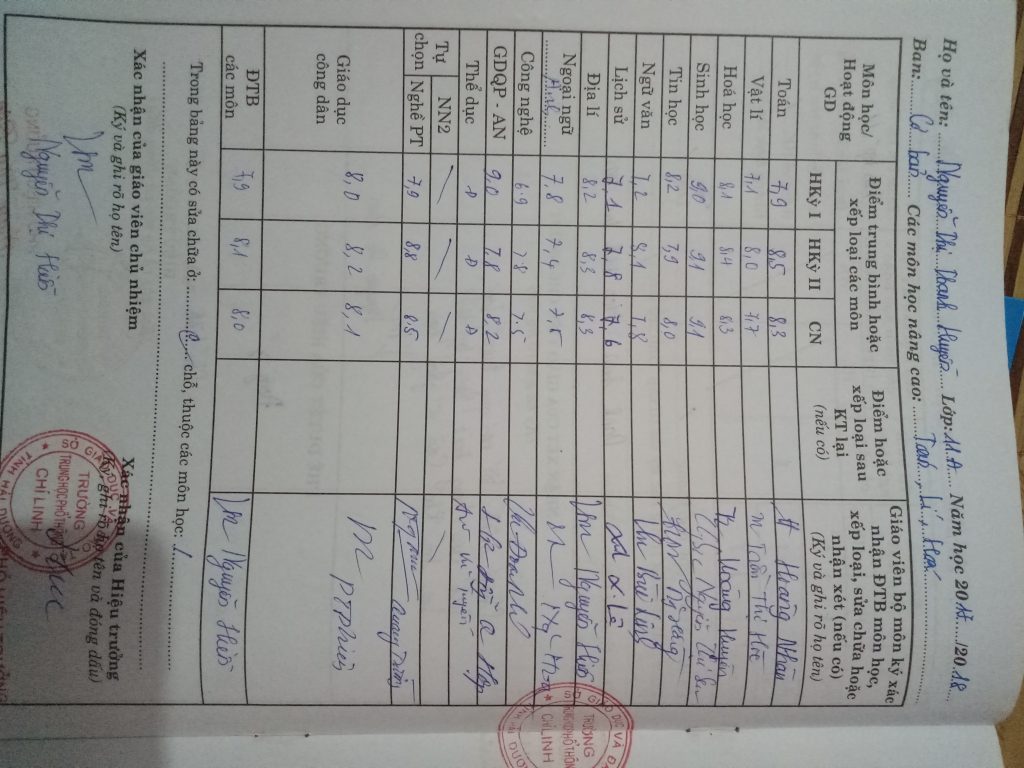 Họ và tên: Nguyễn Thị Thanh Huyền Lớp: 11A Năm học 2017/2018
Ban: Cơ bản Các môn học nâng cao: Toán, Lí, Hoá
Môn học/ Hoạt động GD
Điểm trung bình hoặc xếp loại các môn
HKỳ I HKỳ II CN
Điểm hoặc xếp loại sau KT lại (nếu có)
Giáo viên bộ môn ký xác nhận ĐTB môn học, xếp loại, sửa chữa hoặc nhận xét (nếu có)
(Ký và ghi rõ họ tên)
Toán 7,9 8,5 8,3 Hoàng Nhân
Vật lí 7,1 8,0 7,7 Trần Thị
Hoá học 8,1 8,4 8,3 Hoàng Huyền
Sinh học 9,0 9,1 9,1 Nguyễn Thị
Tin học 8,2 7,9 8,0
Ngữ văn 7,2 8,1 7,8
Lịch sử 7,1 7,8 7,6
Địa lí 8,2 8,3 8,3 Nguyễn Hiền
Ngoại ngữ Anh 7,8 7,4 7,5
Công nghệ 6,9 7,8 7,5
GDQP - AN 9,0 7,8 8,2
Thể dục Đ Đ Đ
Tự chọn
NN2
Nghề PT 7,9 8,8 8,5
Giáo dục công dân 8,0 8,2 8,1
ĐTB các môn 7,9 8,1 8,0 Nguyễn Hiền
Trong bảng này có sửa chữa ở: chỗ, thuộc các môn học: /
Xác nhận của giáo viên chủ nhiệm
(Ký và ghi rõ họ tên)
Nguyễn Thị Hiền
Xác nhận của Hiệu trưởng
(Ký, ghi rõ họ tên và đóng dấu)
TRƯỜNG
TRUNG HỌC PHỔ THÔNG
CHÍ LINH
TRƯỜNG
TRUNG HỌC PHỔ THÔNG
CHÍ LINH